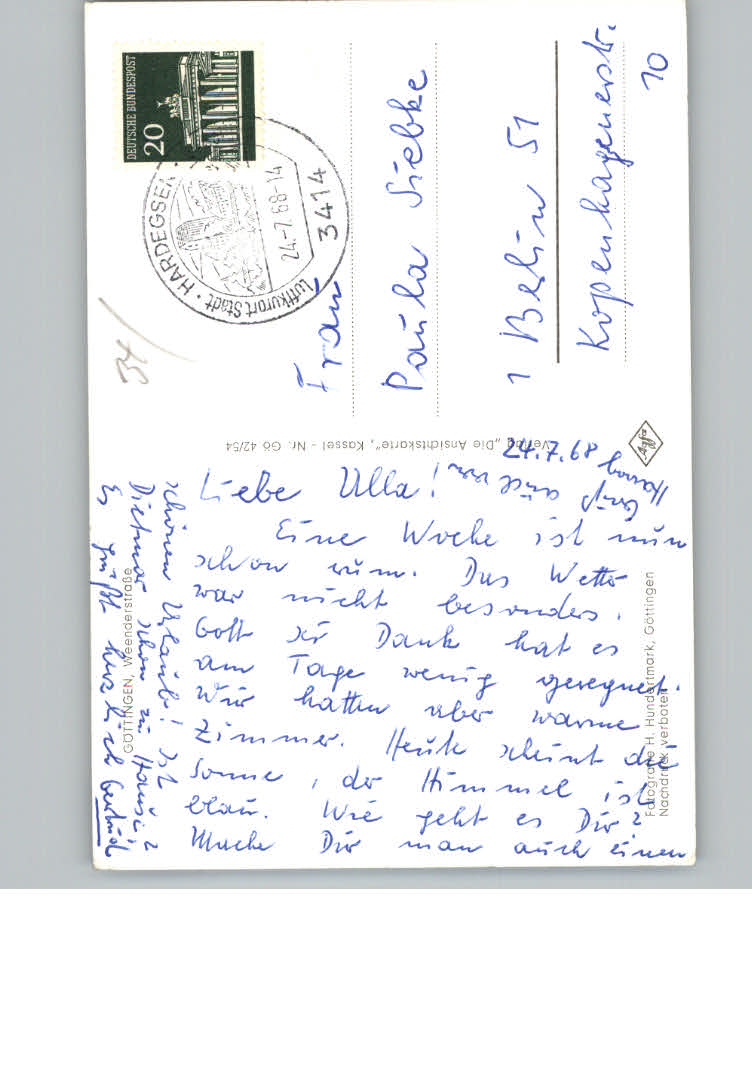 DEUTSCHE BUNDESPOST
20
HARDEGSEN
24.-7.68-14
3414
Luftkurort Stadt
34
Frau
Paula Siebke
1 Berlin 51
Kopenhagenerstr.
10
Verlag „Die Ansichtskarte", Kassel - Nr. Gö 42/54
Agfa
24.7.68
Liebe Ulla!
Eine Woche ist nun
schon rum. Das Wetter
war nicht besonders.
Gott sei Dank hat es
am Tage wenig geregnet.
Wir hatten aber warme
Zimmer. Heute scheint die
Sonne, der Himmel ist
blau. Wie geht es Dir?
Mache Dir man auch einen
schönen Urlaub! Ist
Dietmar schon zu Hause?
Es grüßt herzlich Gertrud
Gruß auch von
GÖTTINGEN, Weenderstraße
Fotografie H. Hundertmark, Göttingen
Nachdruck verboten